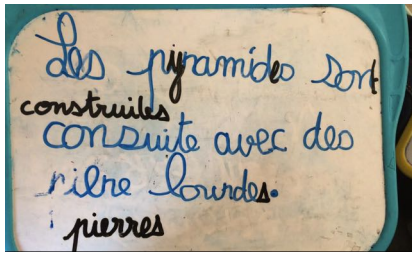 Les pyramides sont
construites
consuite avec des
pierre lourdes.
pierres